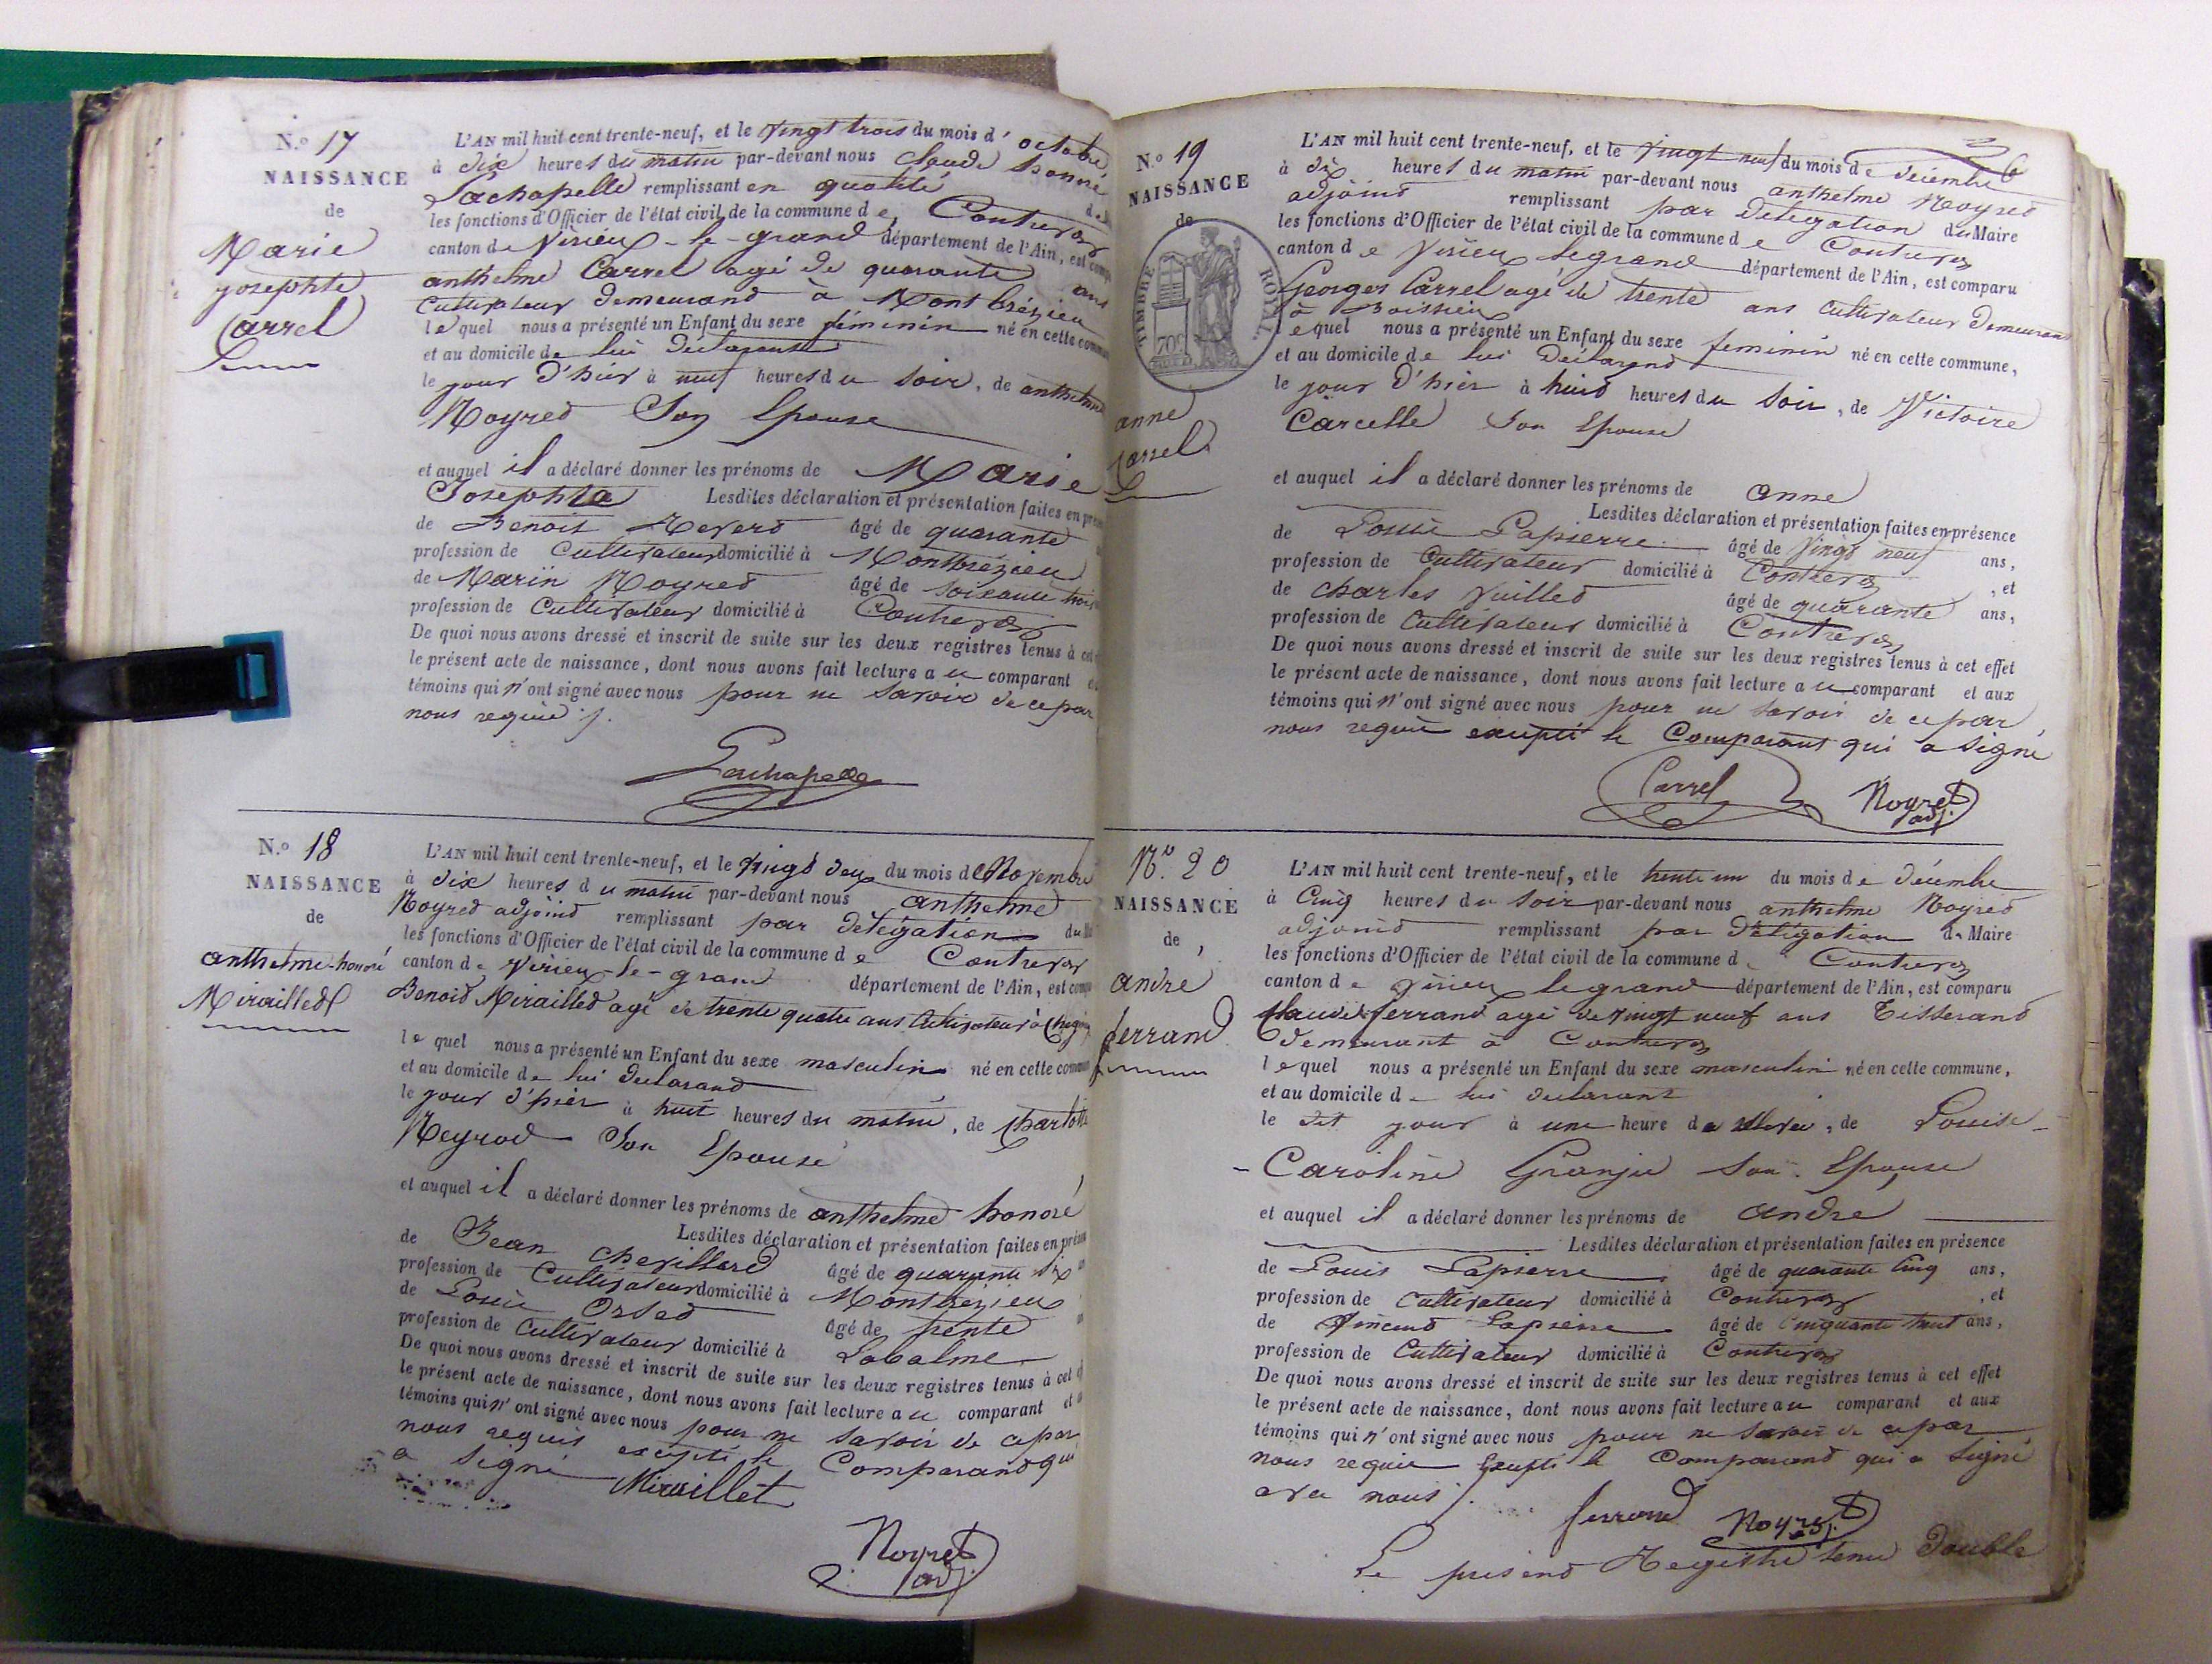 N.º 17
NAISSANCE
de
Marie
josephte
Carrel
L'AN mil huit cent trente-neuf, et le vingt trois du mois d' octobre
à dix heures du matin par-devant nous claude honoré
Lachapelle remplissant en qualité de
les fonctions d'Officier de l'état civil de la commune de Contrevoz
canton de Virieu-le-grand département de l'Ain, est comp
anthelme Carrel agé de quarante ans
cultivateur demeurand à Montbrézieu
lequel nous a présenté un Enfant du sexe féminin né en cette commu
et au domicile de lui déclarant
le jour d'hier à neuf heures du soir, de anthelme
Noyred Son Epouse
et auquel il a déclaré donner les prénoms de Marie
Josephte Lesdites déclaration et présentation faites en pré
de Benoit Reverd âgé de quarante
profession de Cultivateur domicilié à Montbrézieu
de Marin Noyred âgé de soixante trois
profession de Cultivateur domicilié à Contrevoz
De quoi nous avons dressé et inscrit de suite sur les deux registres tenus à cet
le présent acte de naissance, dont nous avons fait lecture au comparant
témoins qui n'ont signé avec nous pour ne savoir de ce par
nous requis
Lachapelle
N.º 18
NAISSANCE
de
anthelme-honoré
Mirailled
L'AN mil huit cent trente-neuf, et le vingt deux du mois de Novembre
à dix heures du matin par-devant nous anthelme
Noyred adjoind remplissant par délégation du
les fonctions d'Officier de l'état civil de la commune de Contrevoz
canton de Virieu-le-grand département de l'Ain, est comp
Benoid Mirailled agé de trente quatre ans Cultivateur à
lequel nous a présenté un Enfant du sexe masculin né en cette commu
et au domicile de lui declarand
le jour d'hier à huit heures du matin, de Charlotte
Neyrod Son Epouse
et auquel il a déclaré donner les prénoms de anthelme honoré
Lesdites déclaration et présentation faites en prése
de Jean chevillard âgé de quarante six
profession de Cultivateur domicilié à Montbrézieu
de Louis Orsed âgé de trente
profession de Cultivateur domicilié à Labalme
De quoi nous avons dressé et inscrit de suite sur les deux registres tenus à cet
le présent acte de naissance, dont nous avons fait lecture au comparant et
témoins qui n'ont signé avec nous pour ne savoir de ce par
nous requis excepté le Comparand qui
a signé Miraillet
Noyret
adj.
N.º 19
NAISSANCE
de
TIMBRE ROYAL
70c
anne
Carrel
L'AN mil huit cent trente-neuf, et le vingt neuf du mois de décembre
à dix heures du matin par-devant nous anthelme Noyred
adjoind remplissant par délégation du Maire
les fonctions d'Officier de l'état civil de la commune de Contrevoz
canton de Virieu legrand département de l'Ain, est comparu
Georges Carrel agé de trente ans cultivateur demeurand
à Boissieu
lequel nous a présenté un Enfant du sexe feminin né en cette commune,
et au domicile de lui Déclarand
le jour d'hier à huid heures du soir, de Victoire
Carcelle son Epouse
et auquel il a déclaré donner les prénoms de anne
Lesdites déclaration et présentation faites en présence
de Louis Lapierre âgé de vingt neuf ans,
profession de Cultivateur domicilié à Contrevoz, et
de charles Vuilled âgé de quarante ans,
profession de Cultivateur domicilié à Contrevoz
De quoi nous avons dressé et inscrit de suite sur les deux registres tenus à cet effet
le présent acte de naissance, dont nous avons fait lecture au comparant et aux
témoins qui n'ont signé avec nous pour ne savoir de ce par
nous requis excepté le Comparant qui a signé
Carrel Noyret
adj.
Nº. 20
NAISSANCE
de
andré
ferrand
L'AN mil huit cent trente-neuf, et le trente un du mois de décembre
à Cinq heures du soir par-devant nous anthelme Noyred
adjoind remplissant par délégation du Maire
les fonctions d'Officier de l'état civil de la commune de Contrevoz
canton de Virieu legrand département de l'Ain, est comparu
Claude ferrand agé de vingt neuf ans Tisserand
demeurant à Contrevoz
lequel nous a présenté un Enfant du sexe masculin né en cette commune,
et au domicile de lui declarant
le dit jour à une heure du , de Louise
- Caroline Granju son Epouse
et auquel il a déclaré donner les prénoms de andré
Lesdites déclaration et présentation faites en présence
de Louis Lapierre âgé de quarante cinq ans,
profession de Cultivateur domicilié à Contrevoz, et
de Vincend Lapierre âgé de cinquante huit ans,
profession de Cultivateur domicilié à Contrevoz
De quoi nous avons dressé et inscrit de suite sur les deux registres tenus à cet effet
le présent acte de naissance, dont nous avons fait lecture au comparant et aux
témoins qui n'ont signé avec nous pour ne savoir de ce par
nous requis Excepté le Comparand qui a signé
avec nous
ferrand Noyret
adj.
Le présend Registre tenu Double